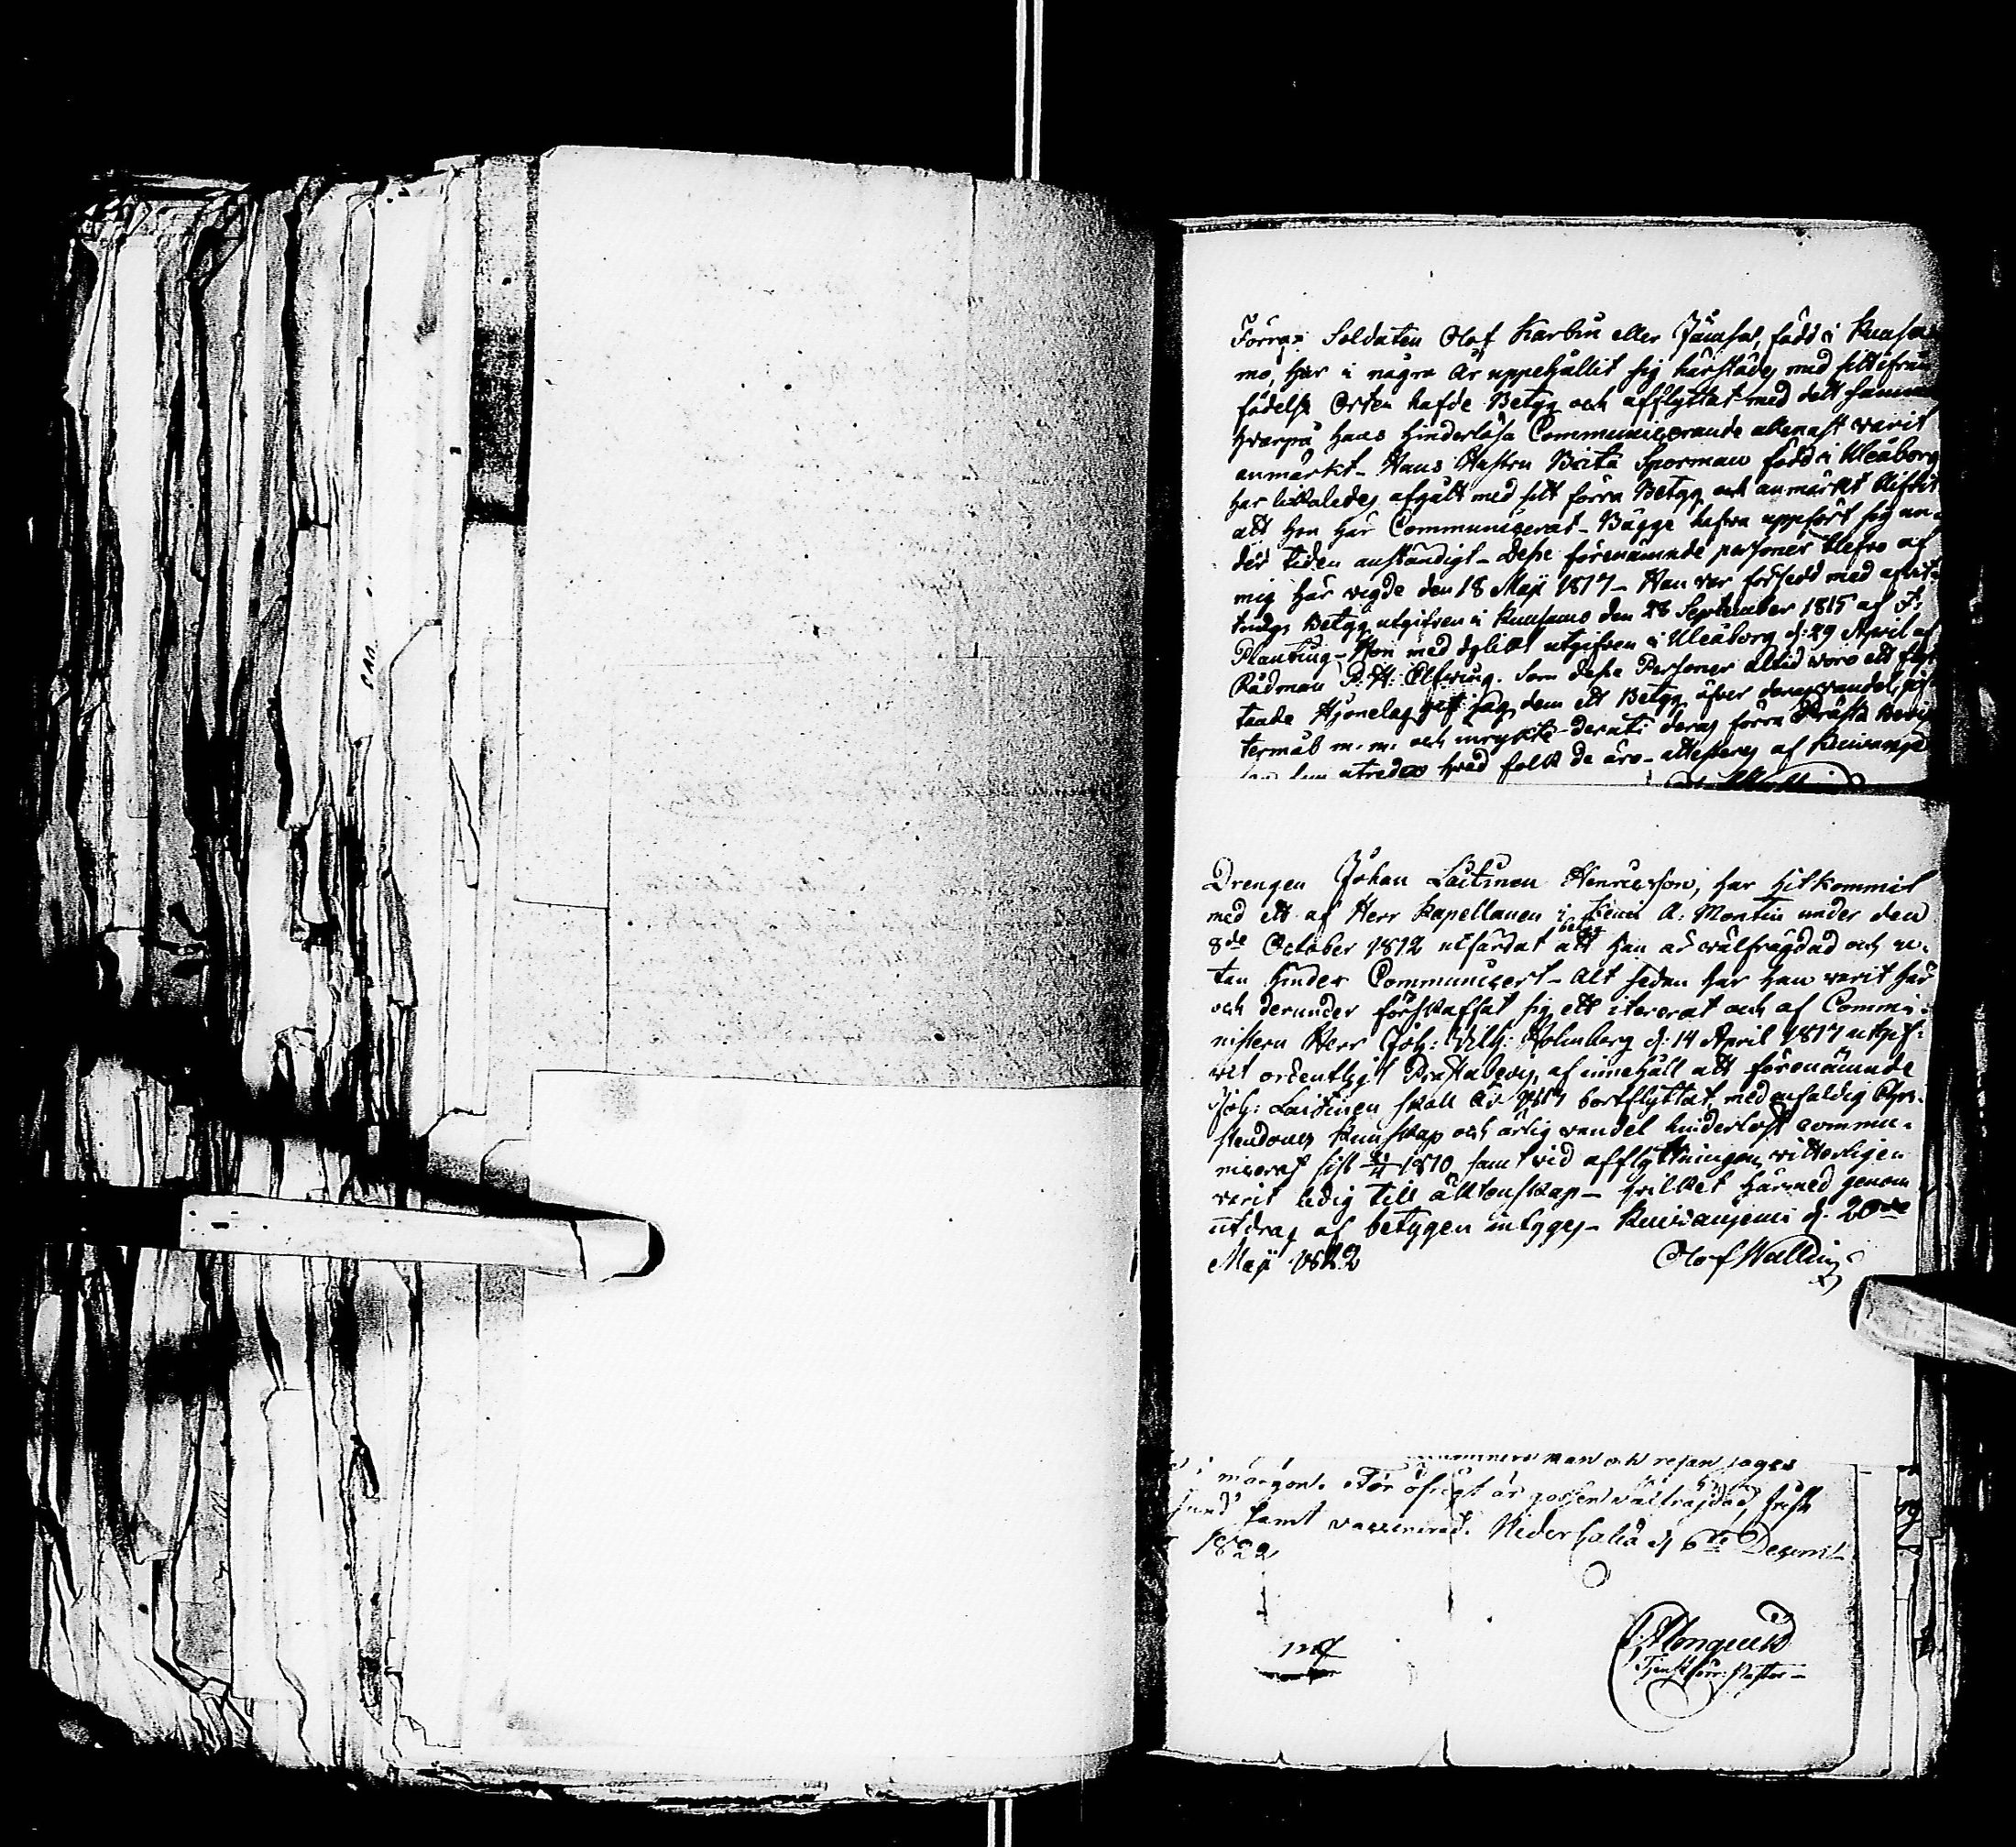 Förra Soldaten Olof Karbin eller Jämsä, född i Kuusa
mo, har i några år uppehållit sig härstädes med sitt ifrån
födelse Orten hafde Betyg och afflyttat med dett samma
hvarpå hans hinderlösa Communicerande allenast varit
anmärkt_ Hans Hustru Brita Sporman född i Uleåborg
har likaledes afgått med sitt förra Betyg och anmärkt
att hon här Communicerat_ Bägge hafva uppfört sig un-
der tiden anständigt_ Desse förenämnde personer blefvo af
mig här vigde den 18 Maji 1817_ Han var försedd med
Betyg utgifven i Kuusamo den 28 September 1815 af
Planting_ Hon med dylikt utgifven i Uleåborg d: 29 April af
Rådman Elfving. Som desse Personer altid voro ett
tande Hjonelag gaf jag dem ett Betyg öfver deras vandel,
termål m. m. och inryckte deruti deras förra Prästa Bevis
utredes hvad folk de äro_ attesteras af Kuivaniemi
Drengen Johan Laitinen Henricsson, har hitkommit
med ett af Herr Kapellanen i Kemi A: Montin under den
8de October 1812 utfärdat betyg att han är välfrägdad och u-
tan hinder Communicert_ Alt sedan har han varit här
och derunder förskaffat sig ett itererat och af Commi-
nistern Herr Joh: Vilh: Holmberg d: 14 April 1817 utgif-
vit ordentligit Prästabevis, af innehåll att förenämnde
Joh: Laitinen skall bortflyttat, med enfaldig Chri-
stendoms kunskap och ärlig vandel hinderlöst commu-
nicerat sist 1810 samt vid afflyttningen vitterligen
varit ledig till äktenskap_ hvilket härmed genom
utdrag af betygen intyges_ Kuivaniemi d. 20de
Maji 1822 Olof Wallin
man och resan tages
i morgon. För öfrigt är gossen välfrägdad, frisk
sund samt vaccinerad. Neder Kalix d 6te Decemb
1822
Tjenstförr: Pastor_